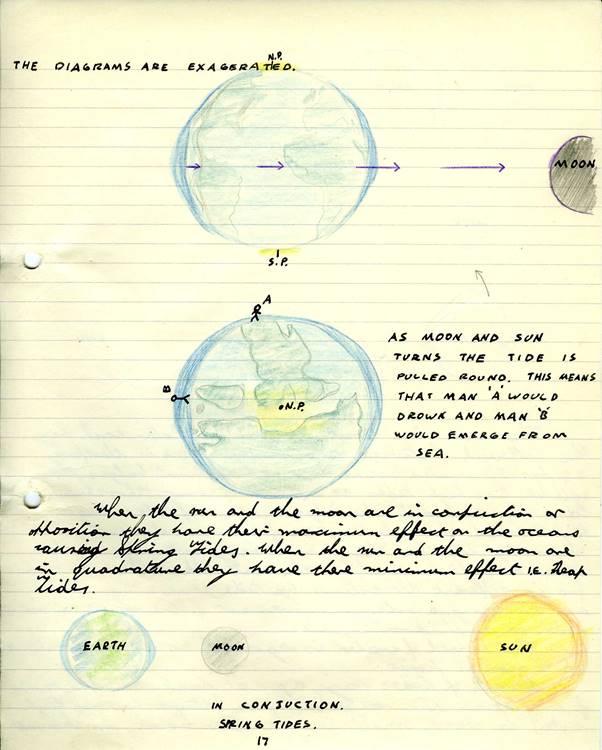 N.P.
THE DIAGRAMS ARE EXAGERATED.
MOON
S.P.
A
B
N.P.
AS MOON AND SUN
TURNS THE TIDE IS
PULLED ROUND. THIS MEANS
THAT MAN 'A' WOULD
DROWN AND MAN 'B'
WOULD EMERGE FROM
SEA.
When the sun and the moon are in conjuction or
opposition they have their maximum effect on the oceans
causing Spring Tides. When the sun and the moon are
in quadrature they have there minimum effect I.E. Neap
Tides.
EARTH
MOON
SUN
IN CONJUCTION.
SPRING TIDES.
17